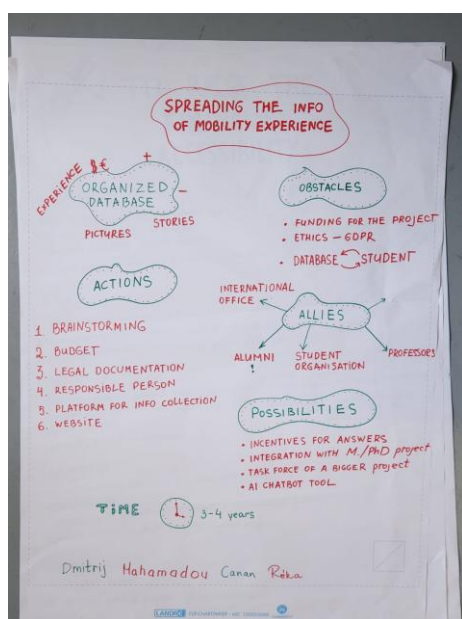 SPREADING THE INFO
OF MOBILITY EXPERIENCE
EXPERIENCE
$€
+
-
ORGANIZED
DATABASE
PICTURES
STORIES
OBSTACLES
• FUNDING FOR THE PROJECT
• ETHICS – GDPR
• DATABASE STUDENT
ACTIONS
1 BRAINSTORMING
2. BUDGET
3. LEGAL DOCUMENTATION
4. RESPONSIBLE PERSON
5. PLATFORM FOR INFO COLLECTION
6. WEBSITE
INTERNATIONAL
OFFICE
ALLIES
ALUMNI
!
STUDENT
ORGANISATION
PROFESSORS
POSSIBILITIES
• INCENTIVES FOR ANSWERS
• INTEGRATION WITH M./PhD project
• TASK FORCE OF A BIGGER project
• AI CHATBOT TOOL
TIME
3-4 years
Dmitrij Mahamadou Canan Réka
LANDRÉ